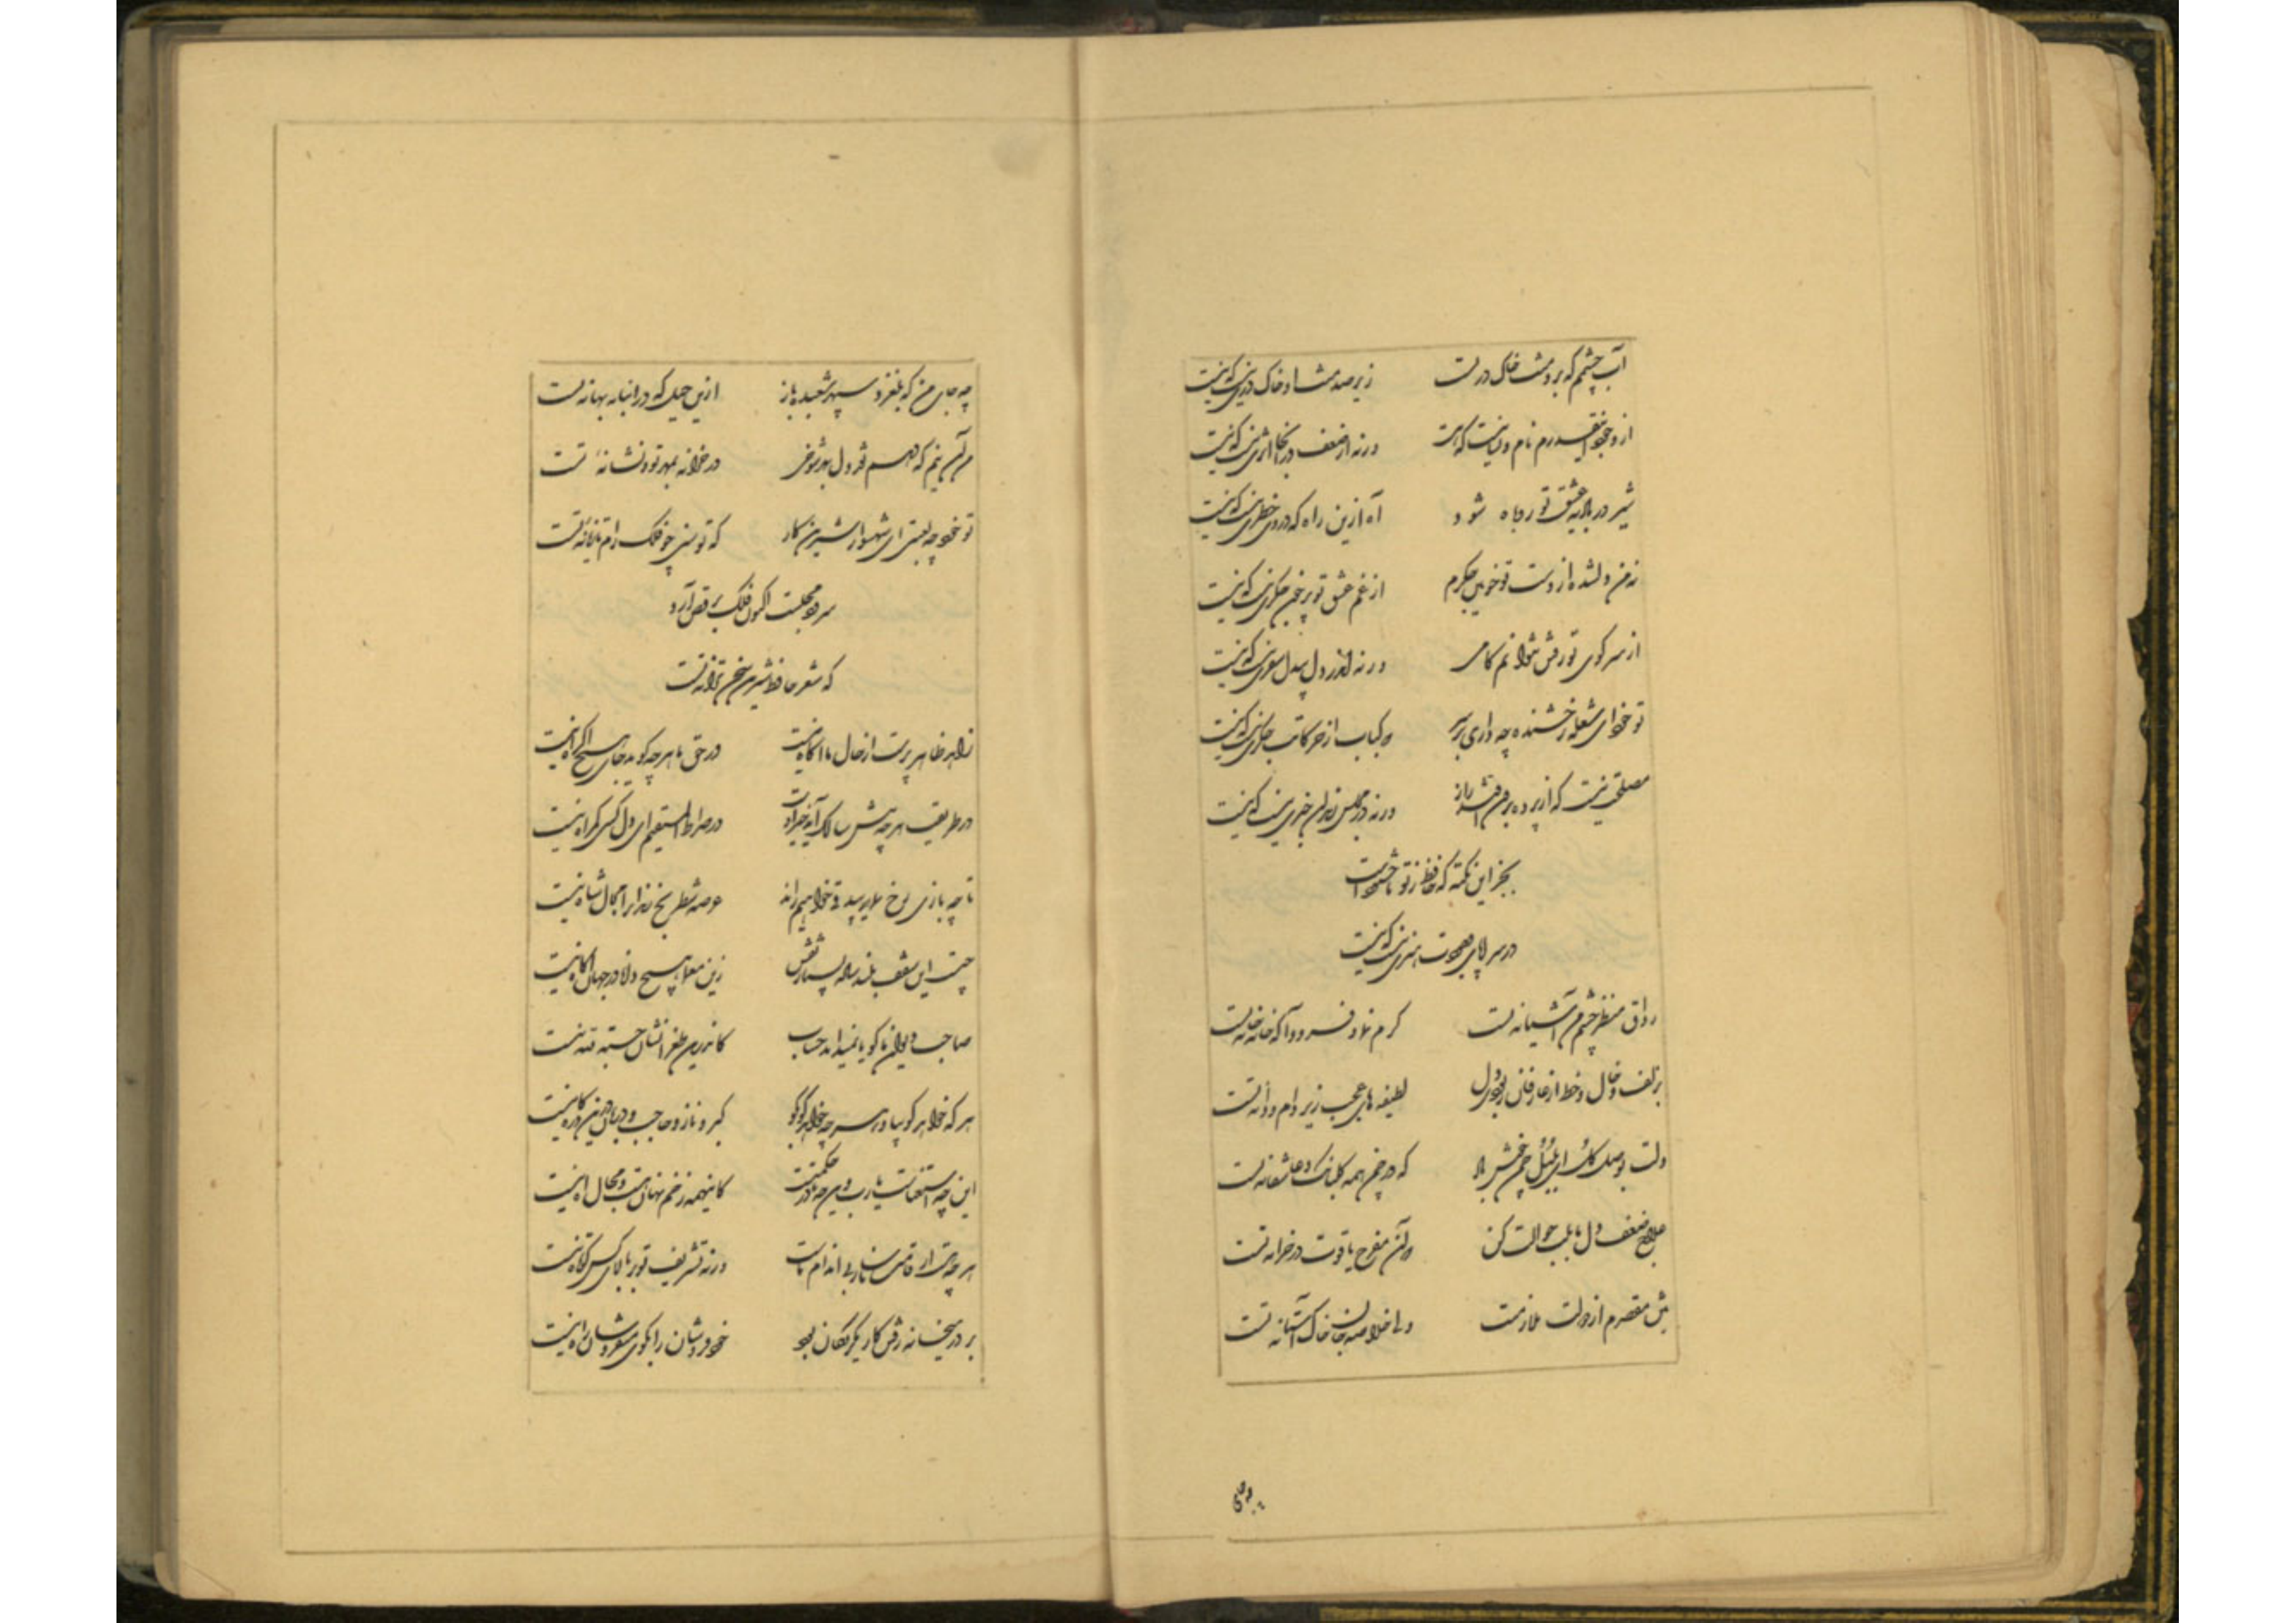 آب چشمم که برو منت خاک در تست زیر صد منت او خاک دری نیست که نیست
از وجود اینقدرم نام و نشانیست که هست ورنه از ضعف در آنجا اثری نیست که نیست
شیر در بادیه عشق تو روباه شود آه ازین راه که در وی خطری نیست که نیست
نه من دلشده از دست تو خونین جگرم از غم عشق تو پر خون جگری نیست که نیست
از سر کوی تو رفتن نتوانم گامی ورنه اندر دل بیدل سفری نیست که نیست
تو خود ای شعله رخشنده چه داری بر سر که کباب از حرکاتت جگری نیست که نیست
مصلحت نیست که از پرده برون افتد راز ورنه در مجلس رندان خبری نیست که نیست
بجز این نکته که حافظ ز تو ناخشنودست
در سراپای وجودت هنری نیست که نیست
رواق منظر چشم من آشیانه تست کرم نما و فرود آ که خانه خانه تست
بزلف و خال و خط از عارفان ربودی دل لطیفه های عجب زیر دام و دانه تست
دلت بوصل گل ای بلبل چمن خوش باد که در چمن همه گلبانگ عاشقانه تست
علاج ضعف دل ما بلب حوالت کن که آن مفرح یاقوت در خزانه تست
بتن مقصرم از دولت ملازمتت ولی خلاصه جان خاک آستانه تست
چه جای من که بلغزد سپهر شعبده باز ازین حیل که در انبانه بهانه تست
من آن نیم که دهم نقد دل بهر شوخی در خزانه بمهر تو و نشانه تست
تو خود چه لعبتی ای شهسوار شیرین کار که توسنی چو فلک رام تازیانه تست
سرود مجلست اکنون فلک برقص آرد
که شعر حافظ شیرین سخن ترانه تست
زاهد ظاهر پرست از حال ما آگاه نیست در حق ما هر چه گوید جای هیچ اکراه نیست
در طریقت هر چه پیش سالک آید خیر اوست در صراط المستقیم ای دل کسی گمراه نیست
تا چه بازی رخ نماید بیدقی خواهیم راند عرصه شطرنج رندان را مجال شاه نیست
چیست این سقف بلند ساده بسیار نقش زین معما هیچ دانا در جهان آگاه نیست
صاحب دیوان ما گویا نمیداند حساب کاندرین طغرا نشان حسبة لله نیست
هر که خواهد گو بیا و هر چه خواهد گو بگو کبر و ناز و حاجب و دربان درین درگاه نیست
این چه استغناست یارب وین چه قادر حکمتست کاینهمه زخم نهان هست و مجال آه نیست
هر چه هست از قامت ناساز بی اندام ماست ورنه تشریف تو بر بالای کس کوتاه نیست
بر در میخانه رفتن کار یکرنگان بود خود فروشان را بکوی میفروشان راه نیست